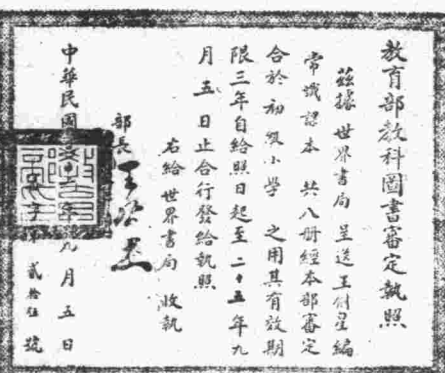 教育部教科圖書審定執照
茲據世界書局呈送王劍星編
常識課本共八冊經本部審定
合於初級小學之用其有效期
限三年自給照日起至二十五年九
月五日止合行發給執照
右給世界書局收執
部長王
中華民國 年九月五日
字第貳拾伍號